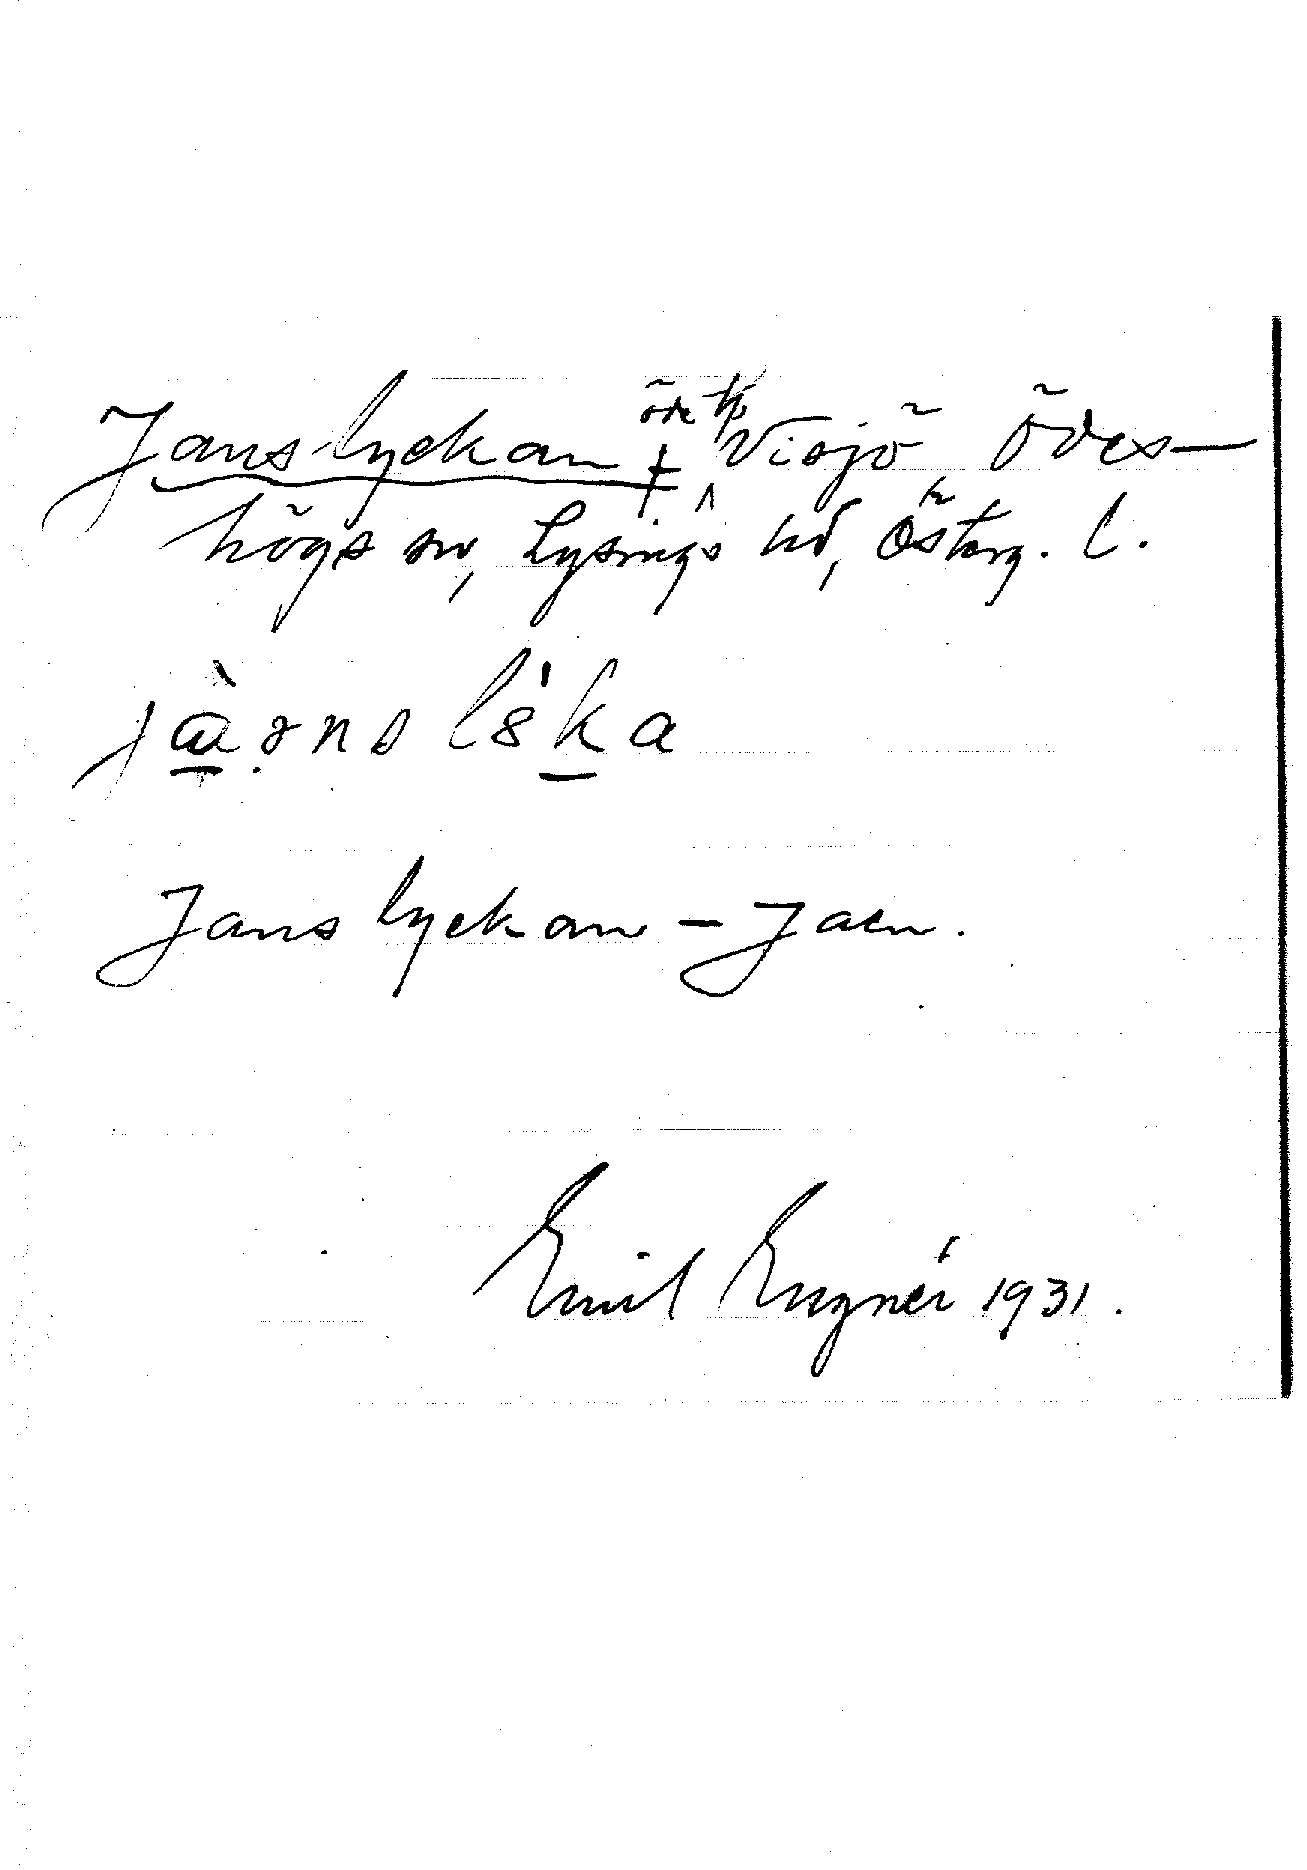 Janslyckan + öde tp Visjö Ödes-
högs sn, Lysings hd, Österg. l.
jàənslə̍ka
Janslyckan – Jaen.
Emil Lugnér 1931.